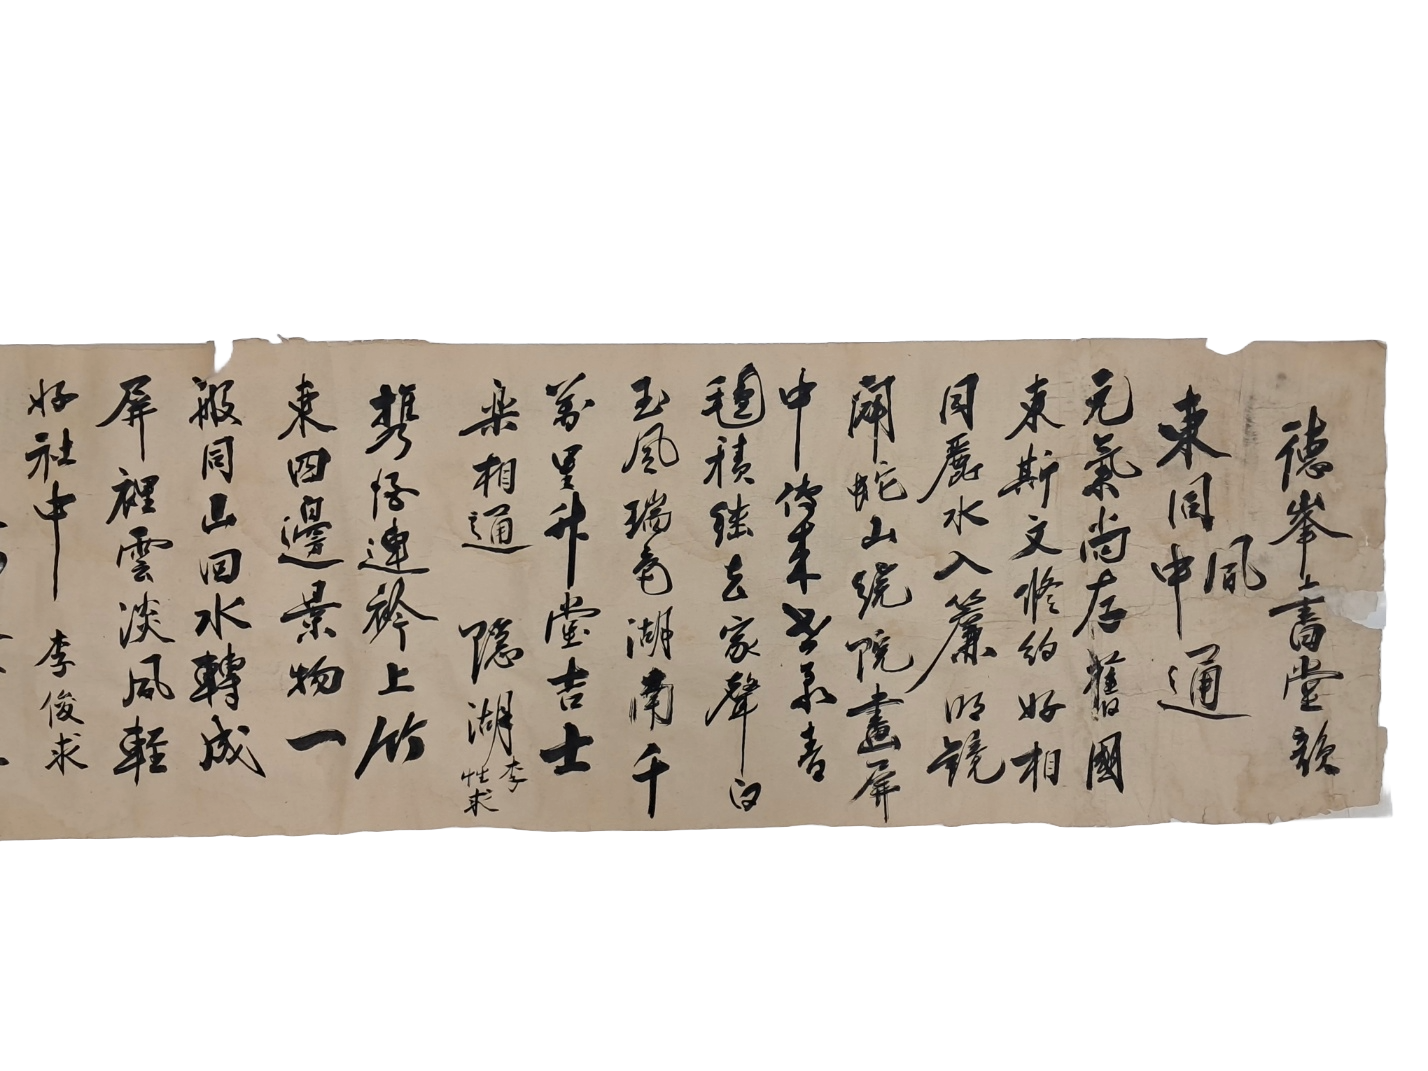 德峯上書堂韻
東同中風通
元氣尚存舊國
東斯文修約好相
同麗水入簾明鏡
開蛇山繞院畫屏
中傳來世業青
氈積継去家聲白
玉風瑞色湖南千
萬里升堂吉士
楽相通 隱湖 李性求
携連衿上竹
東四邊景物一
般同山回水轉成
屏裡雲淡風輕
好社中 李俊求